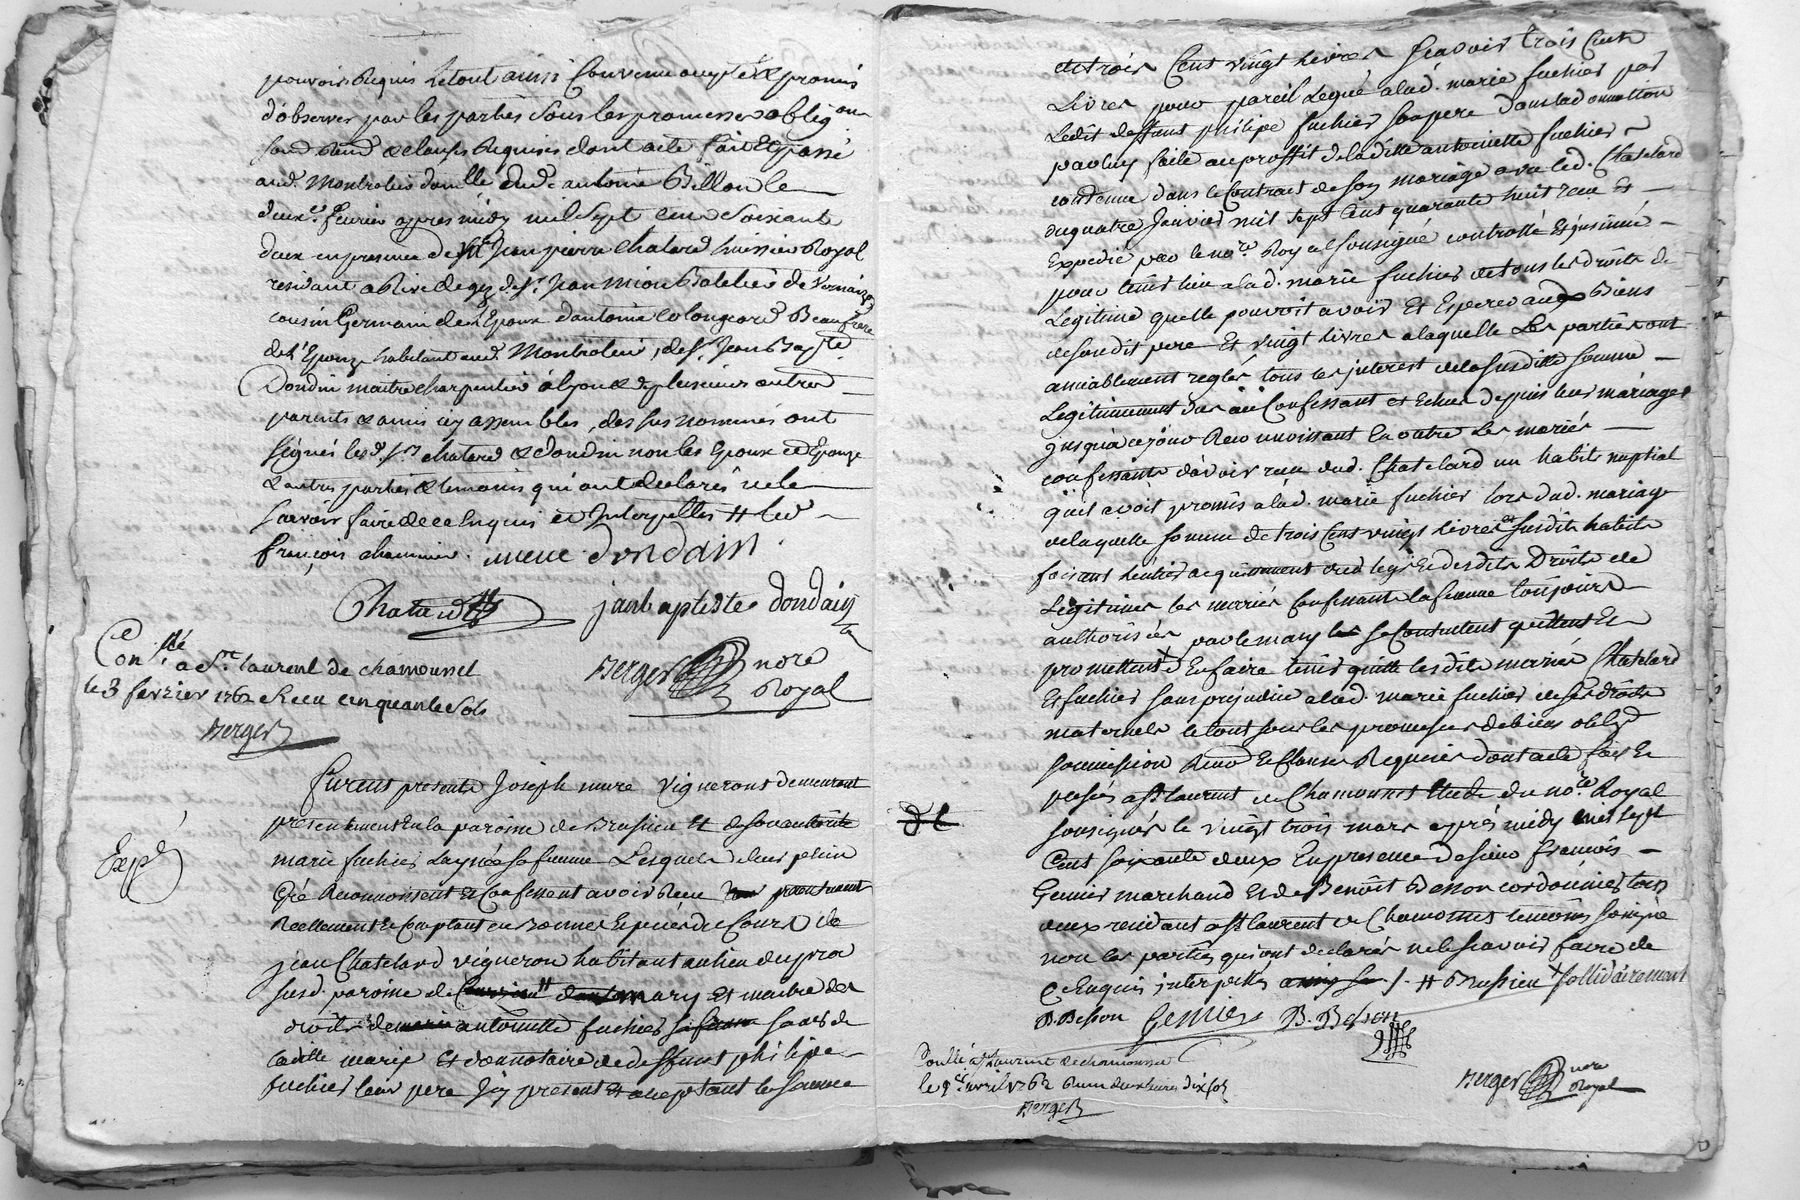 pouvoir Requis le tout ainsi Convenu accepté & promis
d'observer par les parties sous les promesses oblig.ons
soum. Rend. & clauses Requises dont acte fait & passé
aud. Montrotier domille dud. antoine Billon le
deux.e feurier apres midy mil sept cens soixante
deux en presence de Mtre Jean pierre Chatard huissier Royal
residant a Rive de gez de Sr. Jean Mion
cousin Germain de l'Epoux d'antoine colongeard Beaufrere
de l'Epouze habitant aud. Montrotier, de Sr. Jean Bapte
Dondin maitre charpentier à lyon & de plusieurs autres
parents & amis icy assemblés, des sus nommés ont
signés les d. Srs chatard & dondin non les Epoux et Epouze
& autres parties & temoins qui ont declarés ne le
sçavoir faire de ce Enquis et Interpellés # led.
françois
mure dondain
Chatard janbaptiste dondain
Berger nore
Royal
Con.llé a St. laurent de chamousset
le 3 fevrier 1762 Receu cinquante sols
Berger
Expé
furent presents Joseph mure Vigneron demeurant
presentement en la paroisse de Brussieu Et de son authorité
marie fuchier laynée sa femme Lesquels de leur plein
Gré Reconnoissent Et Confessent avoir Receu presentement
Reellement & Comptant en Bonnes Especes de Cours de
jean Chatelard vigneron habitant au lieu du
susd. paroisse de # mary Et maitre des
droits de antoinette fuchier sa femme soeur de
ladite marie Et donnataire de deffunt philipe
fuchier leur pere Icy present Et acceptant la somme
de trois Cent vingt livres sçavoir trois Cent
Livres pour pareil Legué a lad. marie fuchier par
Ledit deffunt philipe fuchier son pere dans la donnation
par luy faite au proffit de laditte antoinette fuchier
contenue dans le Contrat de son mariage avec led. Chatelard
du quatre Janvier mil sept Cent quarante huit receu Et
Expedié par le nore. Royal soussigné controllé Et insinué
pour tenir lieu a lad. marie fuchier de tous les droits de
Legitime quelle pouvoit avoir Et Esperer aux Biens
de sondit pere Et vingt livres a laquelle Les parties ont
amiablement reglés tous les interest de la susditte somme
Legitimement dus au Confessant et Echus depuis leur mariage
jusqu'a ce jour Reconnoissant En outre Les mariés
confessants d'avoir receu dud. Chatelard un habit nuptial
qu'il avoit promis a lad. marie fuchier lors dud. mariage
de laquelle somme de trois Cent vingt livres et susdits habits
faisant l'entier acquittement dud. legs Et desdits Droits de
Legitimes les mariés Confessants la femme toujours
authorisée par le mary se Contentent quittent Et
promettent + En faire tenir quitte lesdits mariés Chatelard
Et fuchier sans prejudice a lad. marie fuchier de ses droits
maternels le tout sous les promesses de biens oblig.
soumission Rend. Et Clauses Requises dont acte fait Et
passés a St laurent de Chamousset Etude du nore. Royal
soussigné le vingt trois mars après midy mil sept
Cent soixante deux En presence de sieur françois
Genier marchand Et de Benoît Besson cordonnier tous
deux residant a St laurent de Chamousset temoins soussignés
non les parties qui ont declarés ne le sçavoir faire de
ce Enquis interpellés /. # Brussieu + sollidairement
B. Besson Genier B. Besson
Con.llé a St laurent de chamousset
le 9 avril 1762 Receu deux livres dix sols
Berger
Berger nore
Royal